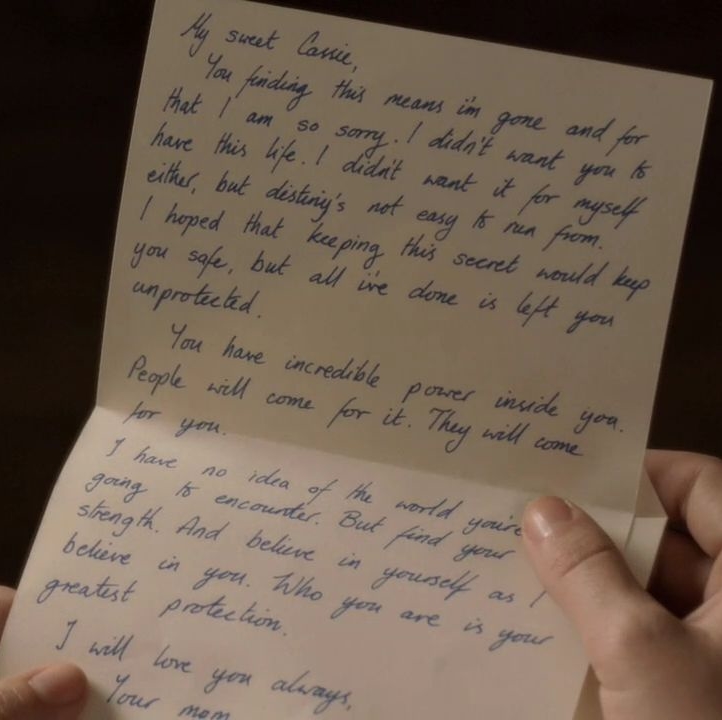 My sweet Cassie,
You finding this means i'm gone and for
that I am so sorry. I didn't want you to
have this life. I didn't want it for myself
either, but destiny's not easy to run from.
I hoped that keeping this secret would keep
you safe, but all i've done is left you
unprotected.
You have incredible power inside you.
People will come for it. They will come
for you.
I have no idea of the world you're
going to encounter. But find your
strength. And believe in yourself as I
believe in you. Who you are is your
greatest protection.
I will love you always,
Your mom